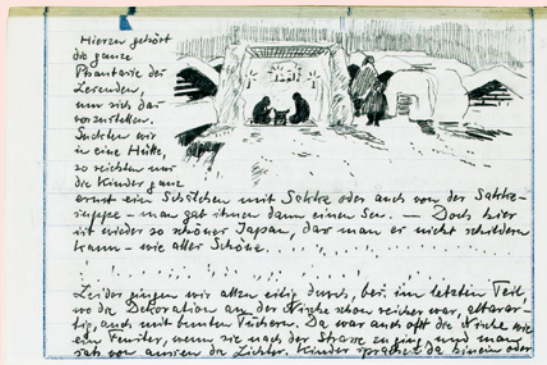 Hierzu gehört
die ganze
Phantasie des
Lesenden,
um sich das
vorzustellen.
Guckten wir
in eine Hütte,
so reichten uns
die Kinder ganz
ernst ein Schälchen mit Sakke oder auch von der Sakke-
suppe – man gab ihnen dann einen Sen. – Doch hier
ist wieder so schönes Japan, das man es nicht schildern
kann – wie alles Schöne.
Leider gingen wir allzu eilig durch, bes. im letzten Teil,
wo die Dekoration an der Nische schon reicher war, altarar-
tig, auch mit bunten Tüchern. Da war auch oft die Nische wie
ein Fenster, wenn sie nach der Strasse zu ging und man
sah von aussen die Lichter. Kinder sprachen da hinein oder